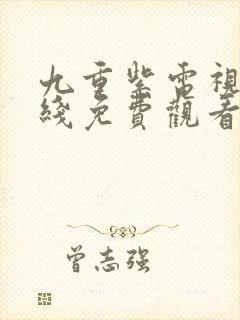 九重紫電視
綫免費觀看
曾志强